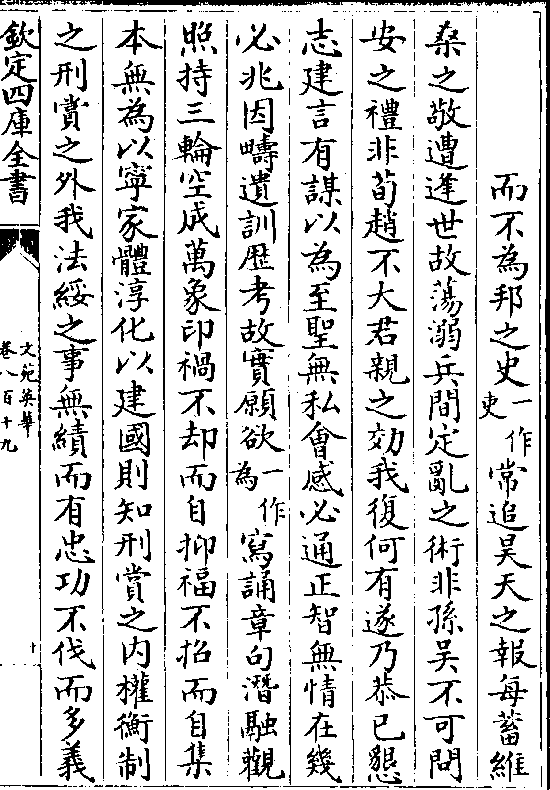 而不為邦之史一作吏常追昊天之報每蓄維
桑之敬遭逢世故蕩溺兵間定亂之術非孫吳不可問
安之禮非荀趙不大君親之効我復何有遂乃恭已懇
志建言有謀以為至聖無私會感必通正智無情在幾
必兆因疇遺訓歴考故實願欲一作為寫誦章句潛融觀
照持三輪空成萬象印禍不却而自抑福不招而自集
本無為以寧家體淳化以建國則知刑賞之内權衡制
之刑賞之外我法綏之事無績而有忠功不伐而多義
欽定四庫全書
文苑英華
卷八百十九
十